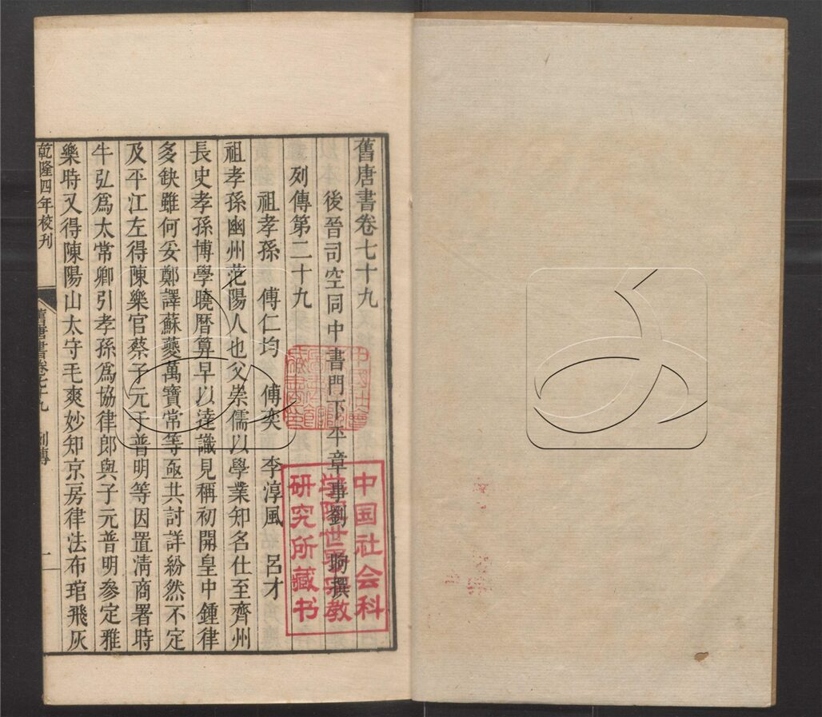 舊唐書卷七十九
後晉司空同中書門下平章事劉昫撰
列傳第二十九
祖孝孫 傅仁均 傅奕 李淳風 呂才
祖孝孫幽州范陽人也父崇儒以學業知名仕至齊州
長史孝孫博學曉曆算早以達識見稱初開皇中鍾律
多缺雖何妥鄭譯蘇夔萬寶常等亟共討詳紛然不定
及平江左得陳樂官蔡子元于普明等因置清商署時
牛弘爲太常卿引孝孫爲協律郎與子元普明參定雅
樂時又得陳陽山太守毛爽妙知京房律法布琯飛灰
乾隆四年校刊 舊唐書卷七十九 列傳 一
中国社会科
学院世界宗教
研究所藏书